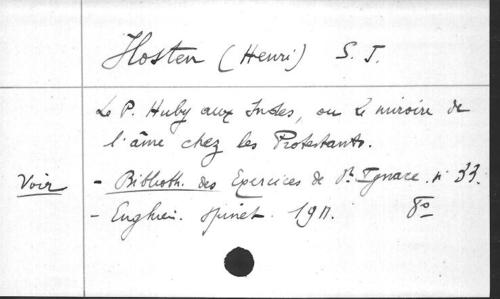 Hosten (Henri) S. J.
Le P. Huby aux Indes, ou le miroire de
l'âme chez les Protestants.
Voir - Biblioth. des Exercices de St Ignace. n° 33.
- Enghien. Spinet. 1911. 8°